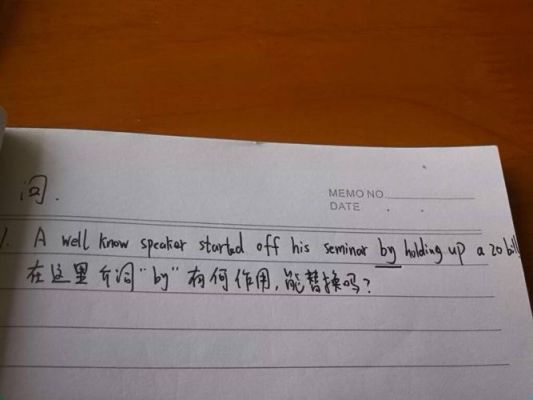 问.
MEMO NO
DATE
1. A well know speaker started off his seminar by holding up a 20 bill
在这里介词"by"有何作用,能替换吗?